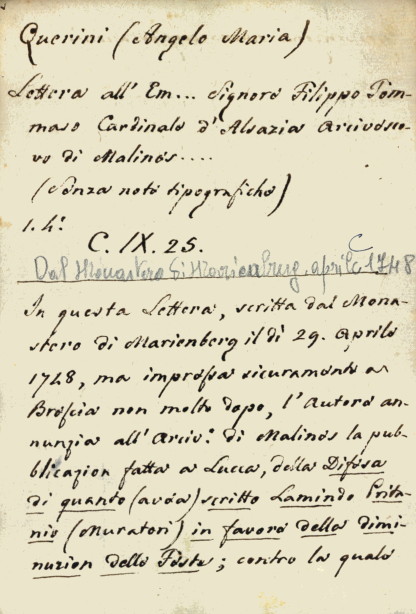 Querini (Angelo Maria)
Lettera all' Em... Signore Filippo Tom-
maso Cardinale d'Alsazia Arcivesco-
vo di Malines....
(Senza note tipografiche)
1. 4.º
C. IX. 25.
Dal Monastero di Marienberg. aprile 1748
In questa Lettera, scritta dal Mona-
stero di Marienberg il dì 29. Aprile
1748, ma impressa sicuramente a
Brescia non molto dopo, l'Autore an-
nunzia all'Arciv.º di Malines la pub-
blicazion fatta a Lucca, della Difesa
di quanto (avea) scritto Lamindo Prita-
nio (Muratori) in favore della dimi-
nuzion delle Feste; contro la quale